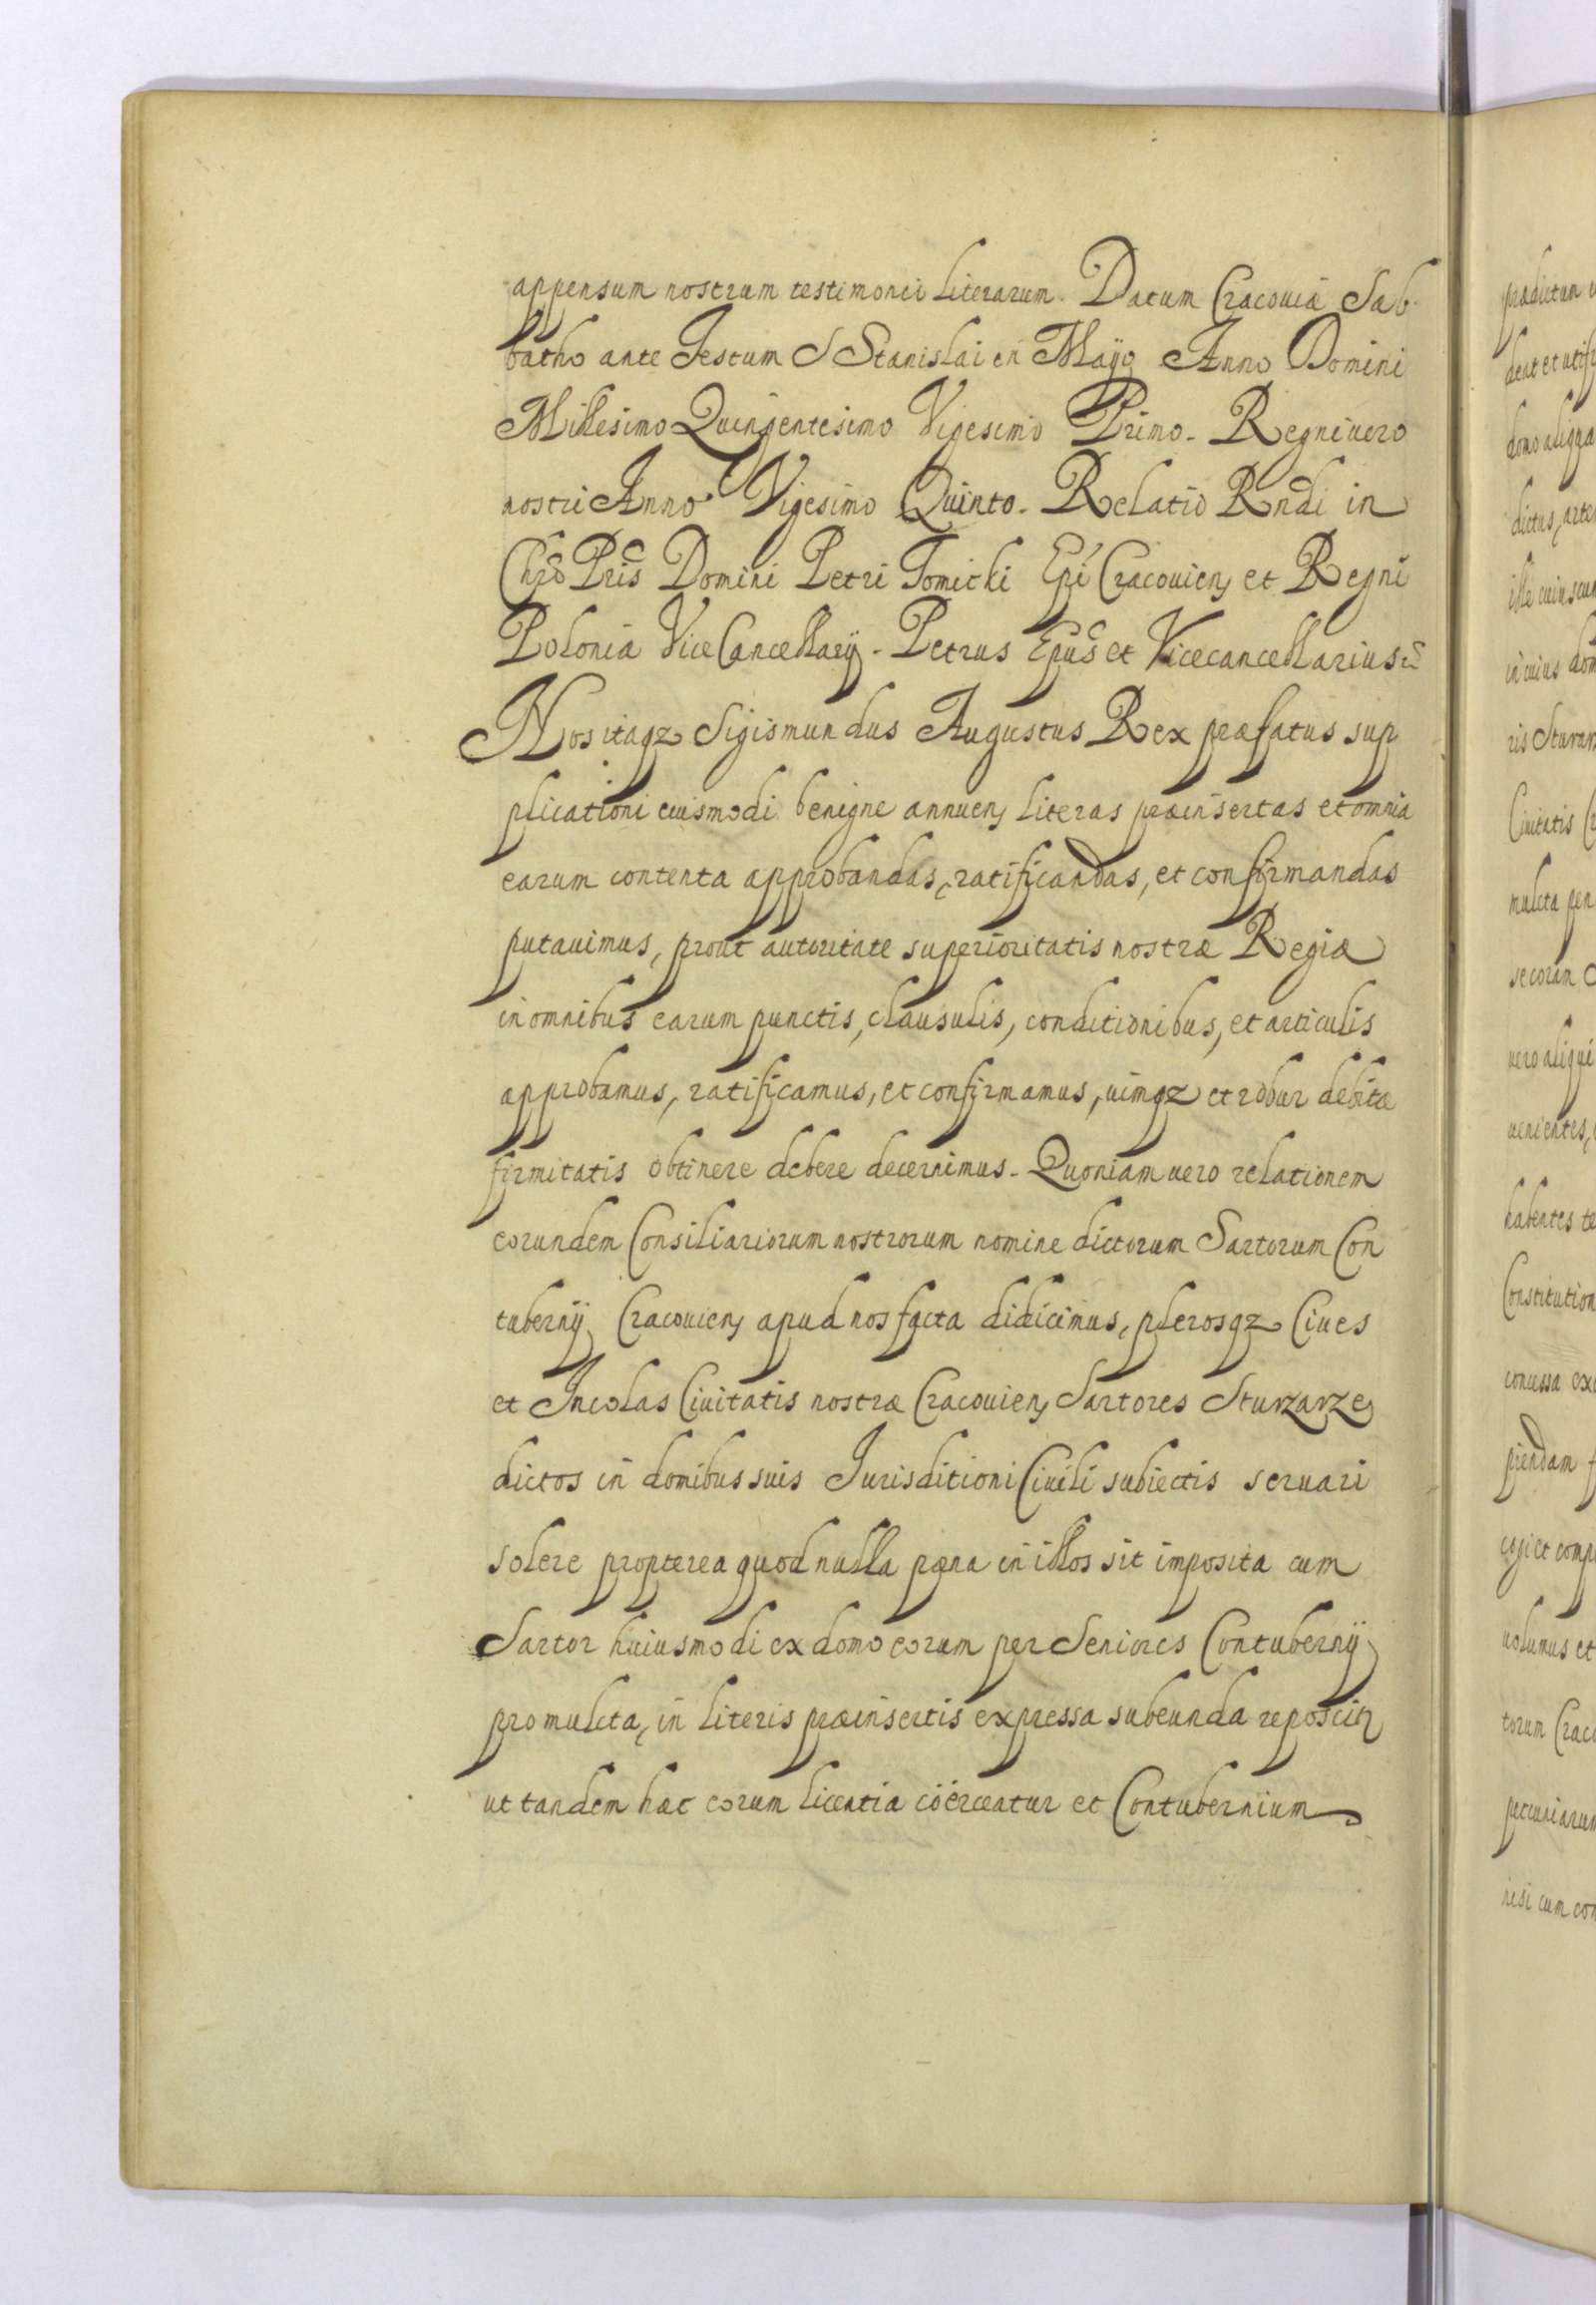 appensum nostrum testimonii literarum. Datum Cracouiæ Sab-
batho ante Festum S Stanislai in Mayo Anno Domini
Millesimo Quingentesimo Vigesimo Primo. Regni uero
nostri Anno Vigesimo Quinto. Relatio Rndi in
Chrō Pris Domini Petri Tomicki Epi Cracouien et Regni
Poloniæ ViceCancellarij. Petrus Epus et Vicecancellarius
Nos itaqz Sigismundus Augustus Rex præfatus sup
plicationi eiusmodi benigne annuen literas præinsertas et omnia
earum contenta approbandas, ratificandas, et confirmandas
putauimus, prout autoritate superioritatis nostræ Regiæ
in omnibus earum punctis, clausulis, conditionibus, et articulis
approbamus, ratificamus, et confirmamus, uimqz et robur debitæ
firmitatis obtinere debere decernimus. Quoniam uero relationem
eorundem Consiliariorum nostrorum nomine dictorum Sartorum Con
tubernij Cracouien apud nos facta didicimus, plerosqz Ciues
et Incolas Ciuitatis nostræ Cracouien Sartores Sturzarze
dictos in domibus suis Jurisditioni Ciuili subiectis seruari
solere propterea quod nulla pæna in illos sit imposita cum
Sartor huiusmodi ex domo eorum per Seniores Contubernij
pro mulcta, in literis præinsertis expressa subeunda reposcitr
ut tandem hæc eorum licentia coërceatur et Contubernium
prædictum
deat et utifr
domo aliqqa
dictus, arte
ille cuiuscun
in cuius dom
ris Sturar
Ciuitatis Cr
mulcta pen
se coram C
uero aliqui
uenientes,
habentes te
Constitution
concessa exc
piendam f
cogi et comp
uolumus et
torum Craco
pecuniarum
nisi cum con